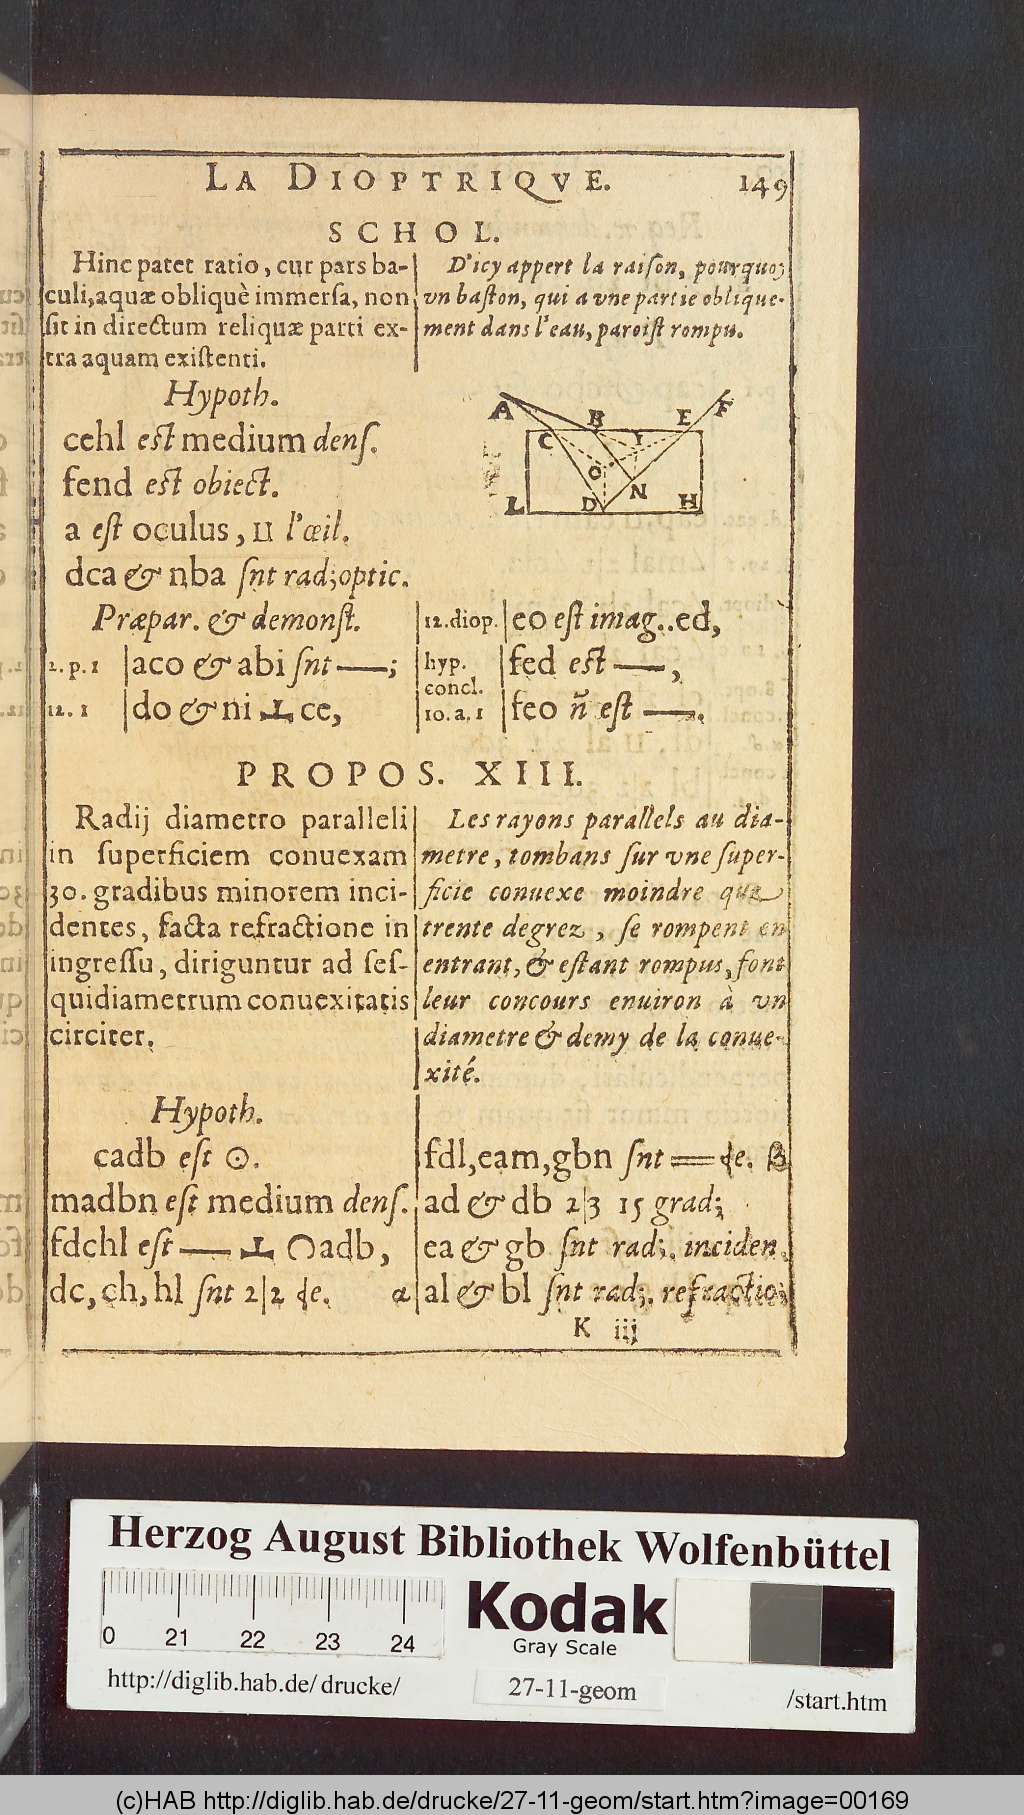 LA DIOPTRIQVE. 149
SCHOL.
Hinc patet ratio, cur pars ba-
culi, aquæ obliquè immersa, non
sit in directum reliquæ parti ex-
tra aquam existenti.
D'icy appert la raison, pourquoy
vn baston, qui a vne partie oblique-
ment dans l'eau, paroist rompu.
Hypoth.
cehl est medium dens.
fend est obiect.
a est oculus, Π l'œil.
dca & nba snt rad; optic.
A B E F
C I
O
L D N H
Præpar. & demonst.
2.p.1 aco & abi snt —;
12.1 do & ni ⊥ ce,
12.diop. eo est imag..ed,
hyp. fed est —,
concl.
10.a.1 feo ñ est —.
PROPOS. XIII.
Radij diametro paralleli
in superficiem conuexam
30. gradibus minorem inci-
dentes, facta refractione in
ingressu, diriguntur ad ses-
quidiametrum conuexitatis
circiter.
Les rayons parallels au dia-
metre, tombans sur vne super-
ficie conuexe moindre que
trente degrez, se rompent en
entrant, & estant rompus, font
leur concours enuiron à vn
diametre & demy de la conue-
xité.
Hypoth.
cadb est ⊙.
madbn est medium dens.
fdchl est — ⊥ adb,
dc, ch, hl snt 2|2 de. α
fdl, eam, gbn snt = de. β
ad & db 2|3 15 grad;
ea & gb snt rad;. inciden.
al & bl snt rad;. refractio;
K iij
Herzog August Bibliothek Wolfenbüttel
0 21 22 23 24
Kodak
Gray Scale
http://diglib.hab.de/drucke/ 27-11-geom /start.htm
(c)HAB http://diglib.hab.de/drucke/27-11-geom/start.htm?image=00169